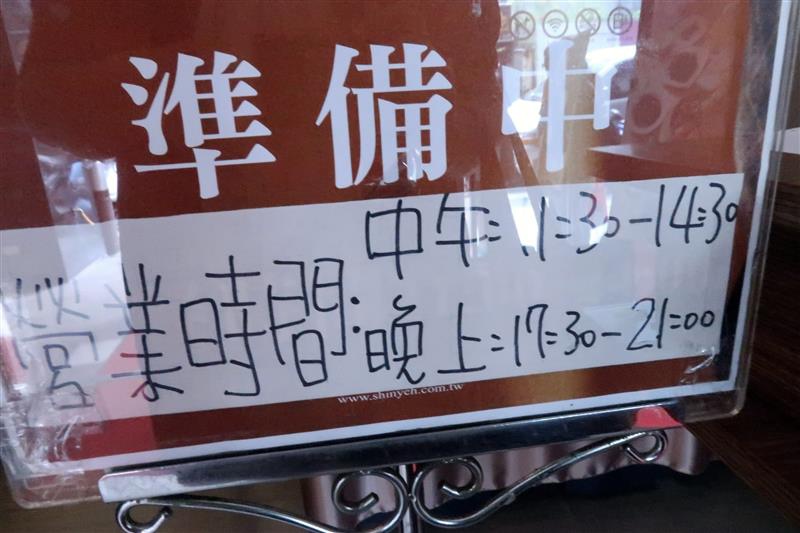 準備中
中午:11:30-14:30
營業時間:晚上:17:30-21:00
www.shinyeh.com.tw